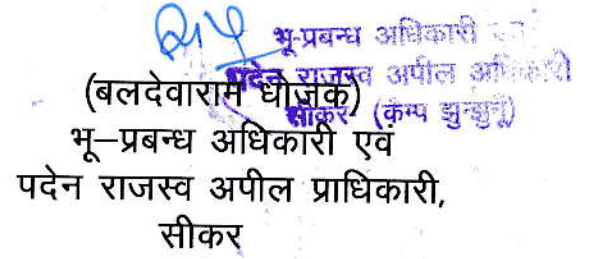 भू-प्रबन्ध अधिकारी
पदेन राजस्व अपील अधिकारी
सीकर (कैम्प झुन्झुनू)
(बलदेवाराम धोजक)
भू–प्रबन्ध अधिकारी एवं
पदेन राजस्व अपील प्राधिकारी,
सीकर